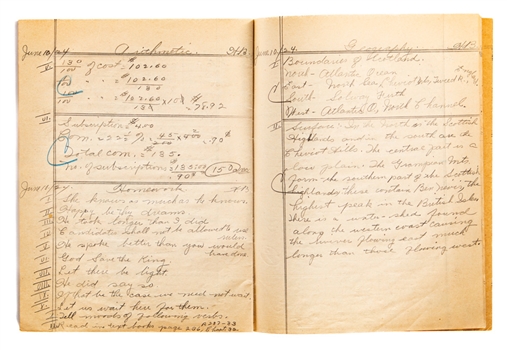 June 10/24 Arithmetic. H.B.
V. 130/100 of cost = $102.60
100
100/100 " " = $102.60 / 130
100/100 " " = $102.60 / 130 × 100 = $78.92
VI. Subscription = $4.00
Com. = 22½% = 45/200 × 400 = .90¢
Total com. = $135.
no. of subscriptions = 135.00 / .90 = 150
June 11/24. Homework H.B.
I She knows as much as to
II Happy be thy dreams.
III He took longer than I did
IV Candidates shall not be allowed to
V He spoke better than you would
VI God Save the King.
VII Let there be light.
VIII He did say so
IX If that be the case we need not wait.
X Let us wait here for them.
Tell moods of following verbs.
read in text book page 206,
June 10/24. Geography. H.B.
I Boundaries of Scotland.
North - Atlantic Ocean
East - North Sea, Cheviot Hills, Tweed R.
South - Solway Firth
West - Atlantic O, North Channel.
II Surface: In the north are the Scottish
Highlands and in the south are the
Cheviot Hills. The central part is a
low plain. The Grampian Mts.
form the southern part of the Scottish
Highlands these contain Ben Nevis the
highest peak in the British Isles
There is a water-shed found
along the western coast causing
the rivers flowing east much
longer than those flowing west.